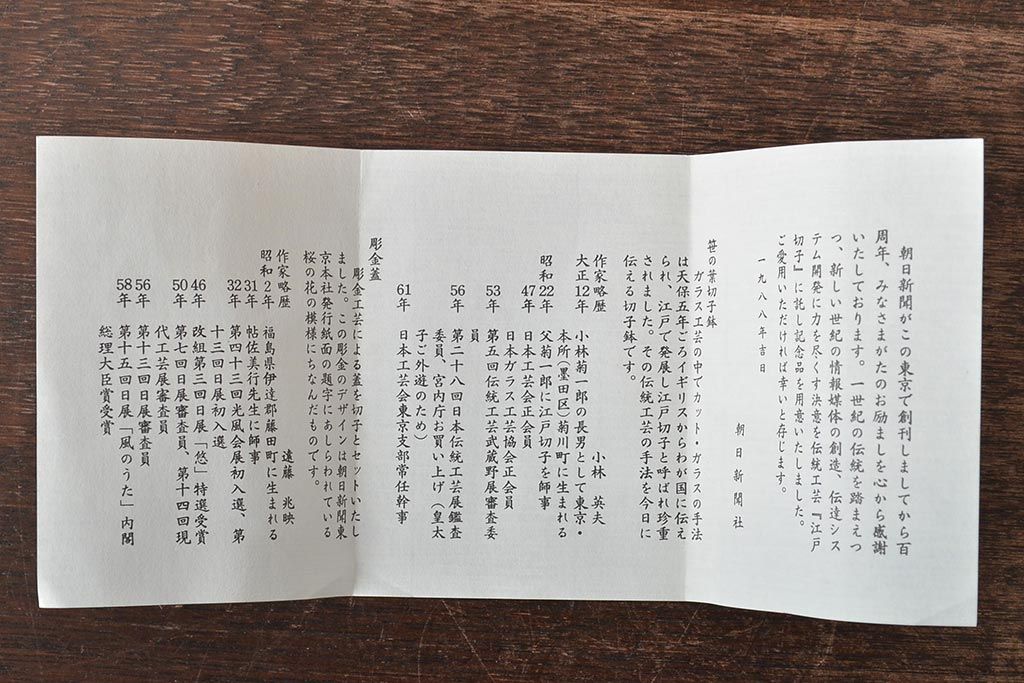 朝日新聞がこの東京で創刊しましてから百
周年、みなさまがたのお励ましを心から感謝
いたしております。一世紀の伝統を踏まえつ
つ、新しい世紀の情報媒体の創造、伝達シス
テム開発に力を尽くす決意を伝統工芸『江戸
切子』に託し記念品を用意いたしました。
ご愛用いただければ幸いと存じます。
一九八八年吉日
朝日新聞社
笹の葉切子鉢
ガラス工芸の中でカット・ガラスの手法
は天保五年ごろイギリスからわが国に伝え
られ、江戸で発展し江戸切子と呼ばれ珍重
されました。その伝統工芸の手法を今日に
伝える切子鉢です。
小林 英夫
作家略歴
大正12年 小林菊一郎の長男として東京・
本所(墨田区)菊川町に生まれる
昭和22年 父菊一郎に江戸切子を師事
47年 日本工芸会正会員
日本ガラス工芸協会正会員
53年 第五回伝統工芸武蔵野展審査委
員
56年 第二十八回日本伝統工芸展鑑査
委員、宮内庁お買い上げ(皇太
子ご外遊のため)
61年 日本工芸会東京支部常任幹事
彫金蓋
彫金工芸による蓋を切子とセットいたし
ました。この彫金のデザインは朝日新聞東
京本社発行紙面の題字にあしらわれている
桜の花の模様にちなんだものです。
遠藤 兆映
作家略歴
昭和2年 福島県伊達郡藤田町に生まれる
31年 帖佐美行先生に師事
32年 第四十三回光風会展初入選、第
十三回日展初入選
46年 改組第三回日展「悠」特選受賞
50年 第七回日展審査員、第十四回現
代工芸展審査員
56年 第十三回日展審査員
58年 第十五回日展「風のうた」内閣
総理大臣賞受賞